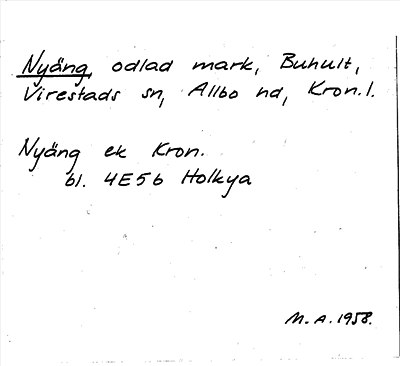 Nyäng, odlad mark, Buhult,
Virestads sn, Allbo hd, Kron.l.
Nyäng ek Kron.
bl. 4E5b Holkya
M.A. 1958.